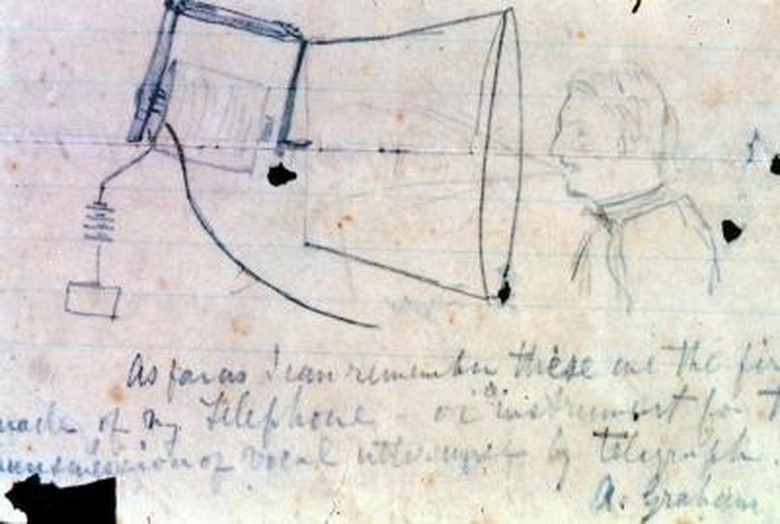 As far as I can remember these are the fir
made of my telephone - or instrument for t
ansmission of vocal utterances by telegraph.
A. Graham